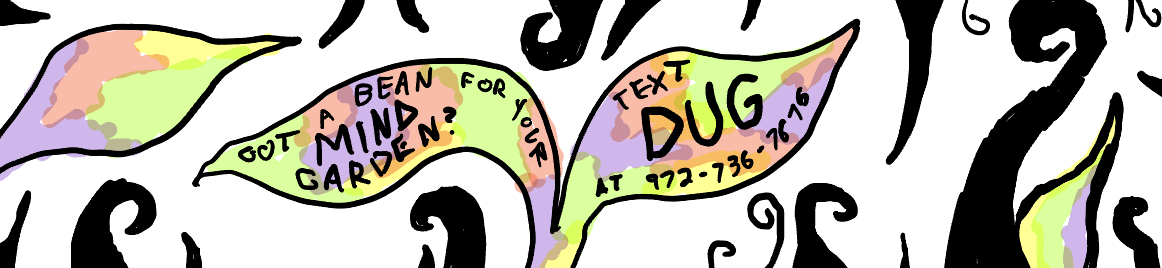 GOT A BEAN FOR YOUR
MIND
GARDEN?
TEXT
DUG
AT 972-736-7676